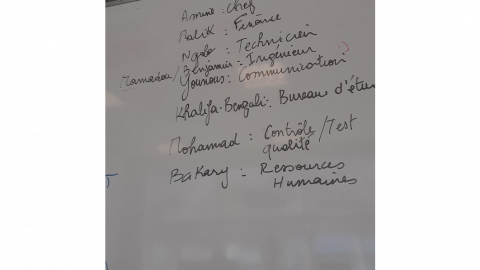 Amine : Chef
Malik : Finance
Ngolo : Technicien
Mamadou/Benjamin : Ingénieur
Younous : Communication
Khalifa-Bengali : Bureau d'étu
Mohamad : Contrôle/Test
qualité
Bakary : Ressources
Humaines